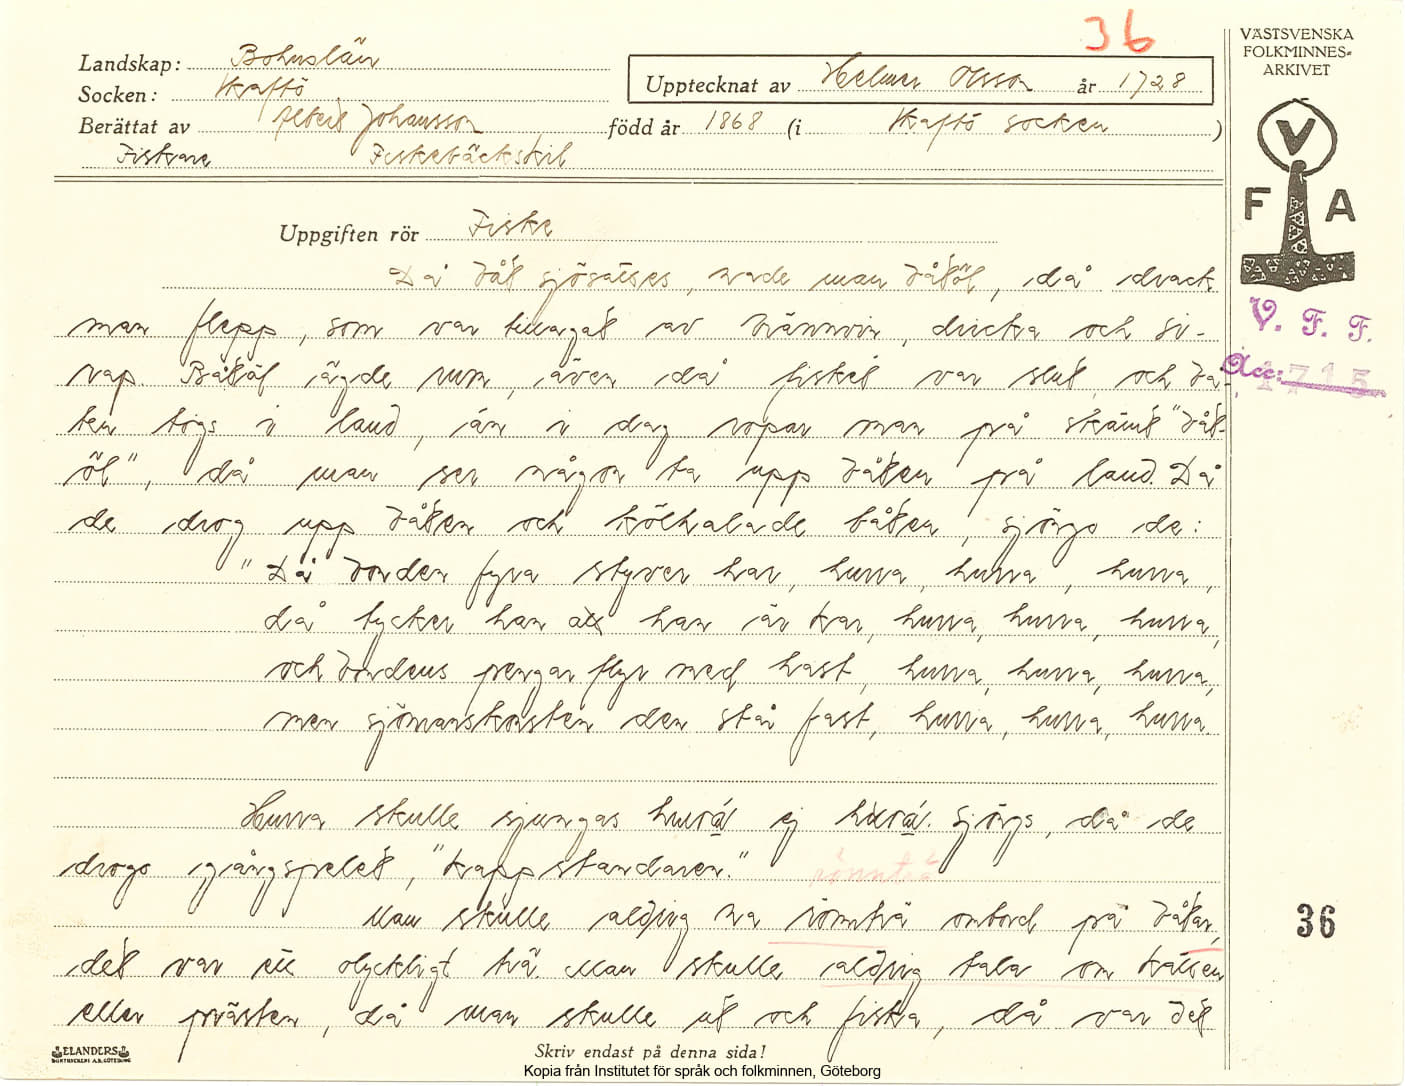 36
Landskap: Bohuslän
Socken: Skaftö
Berättat av Albert Johansson
Fiskare Fiskebäckskil
Upptecknat av Helmer Olsson år 1928
född år 1868 (i Skaftö socken)
VÄSTSVENSKA
FOLKMINNES-
ARKIVET
V
F A
V. F. F.
Acc: 1715
Uppgiften rör Fiske
Då båt sjösattes, hade man båtöl, då drack
man flepp, som var tillagat av brännvin, dricka och si-
rap. Båtöl ägde rum, även då fisket var slut och bå-
ten togs i land, än i dag ropar man på skämt "båt-
öl", då man ser någon ta upp båten på land. Då
de drog upp båten och kölhalade båten, sjöngo de:
"Då bonden fyra styver har, hurra, hurra, hurra,
då tycker han att han är kar, hurra, hurra, hurra,
och bondens pengar flyr med hast, hurra, hurra, hurra,
men sjömanskosten den står fast, hurra, hurra, hurra.
Hurra skulle sjungas hurrá ej húrra. Sjöngs, då de
drogo gångspelet, "kappstandaren."
rönnträ
Man skulle aldrig ha rönnträ ombord på båtar,
det var ett olyckligt trä. Man skulle aldrig tala om katten
eller prästen, då man skulle ut och fiska, då var det
36
ELANDERS
BOKTRYCKERI A.B. GÖTEBORG
Skriv endast på denna sida!
Kopia från Institutet för språk och folkminnen, Göteborg